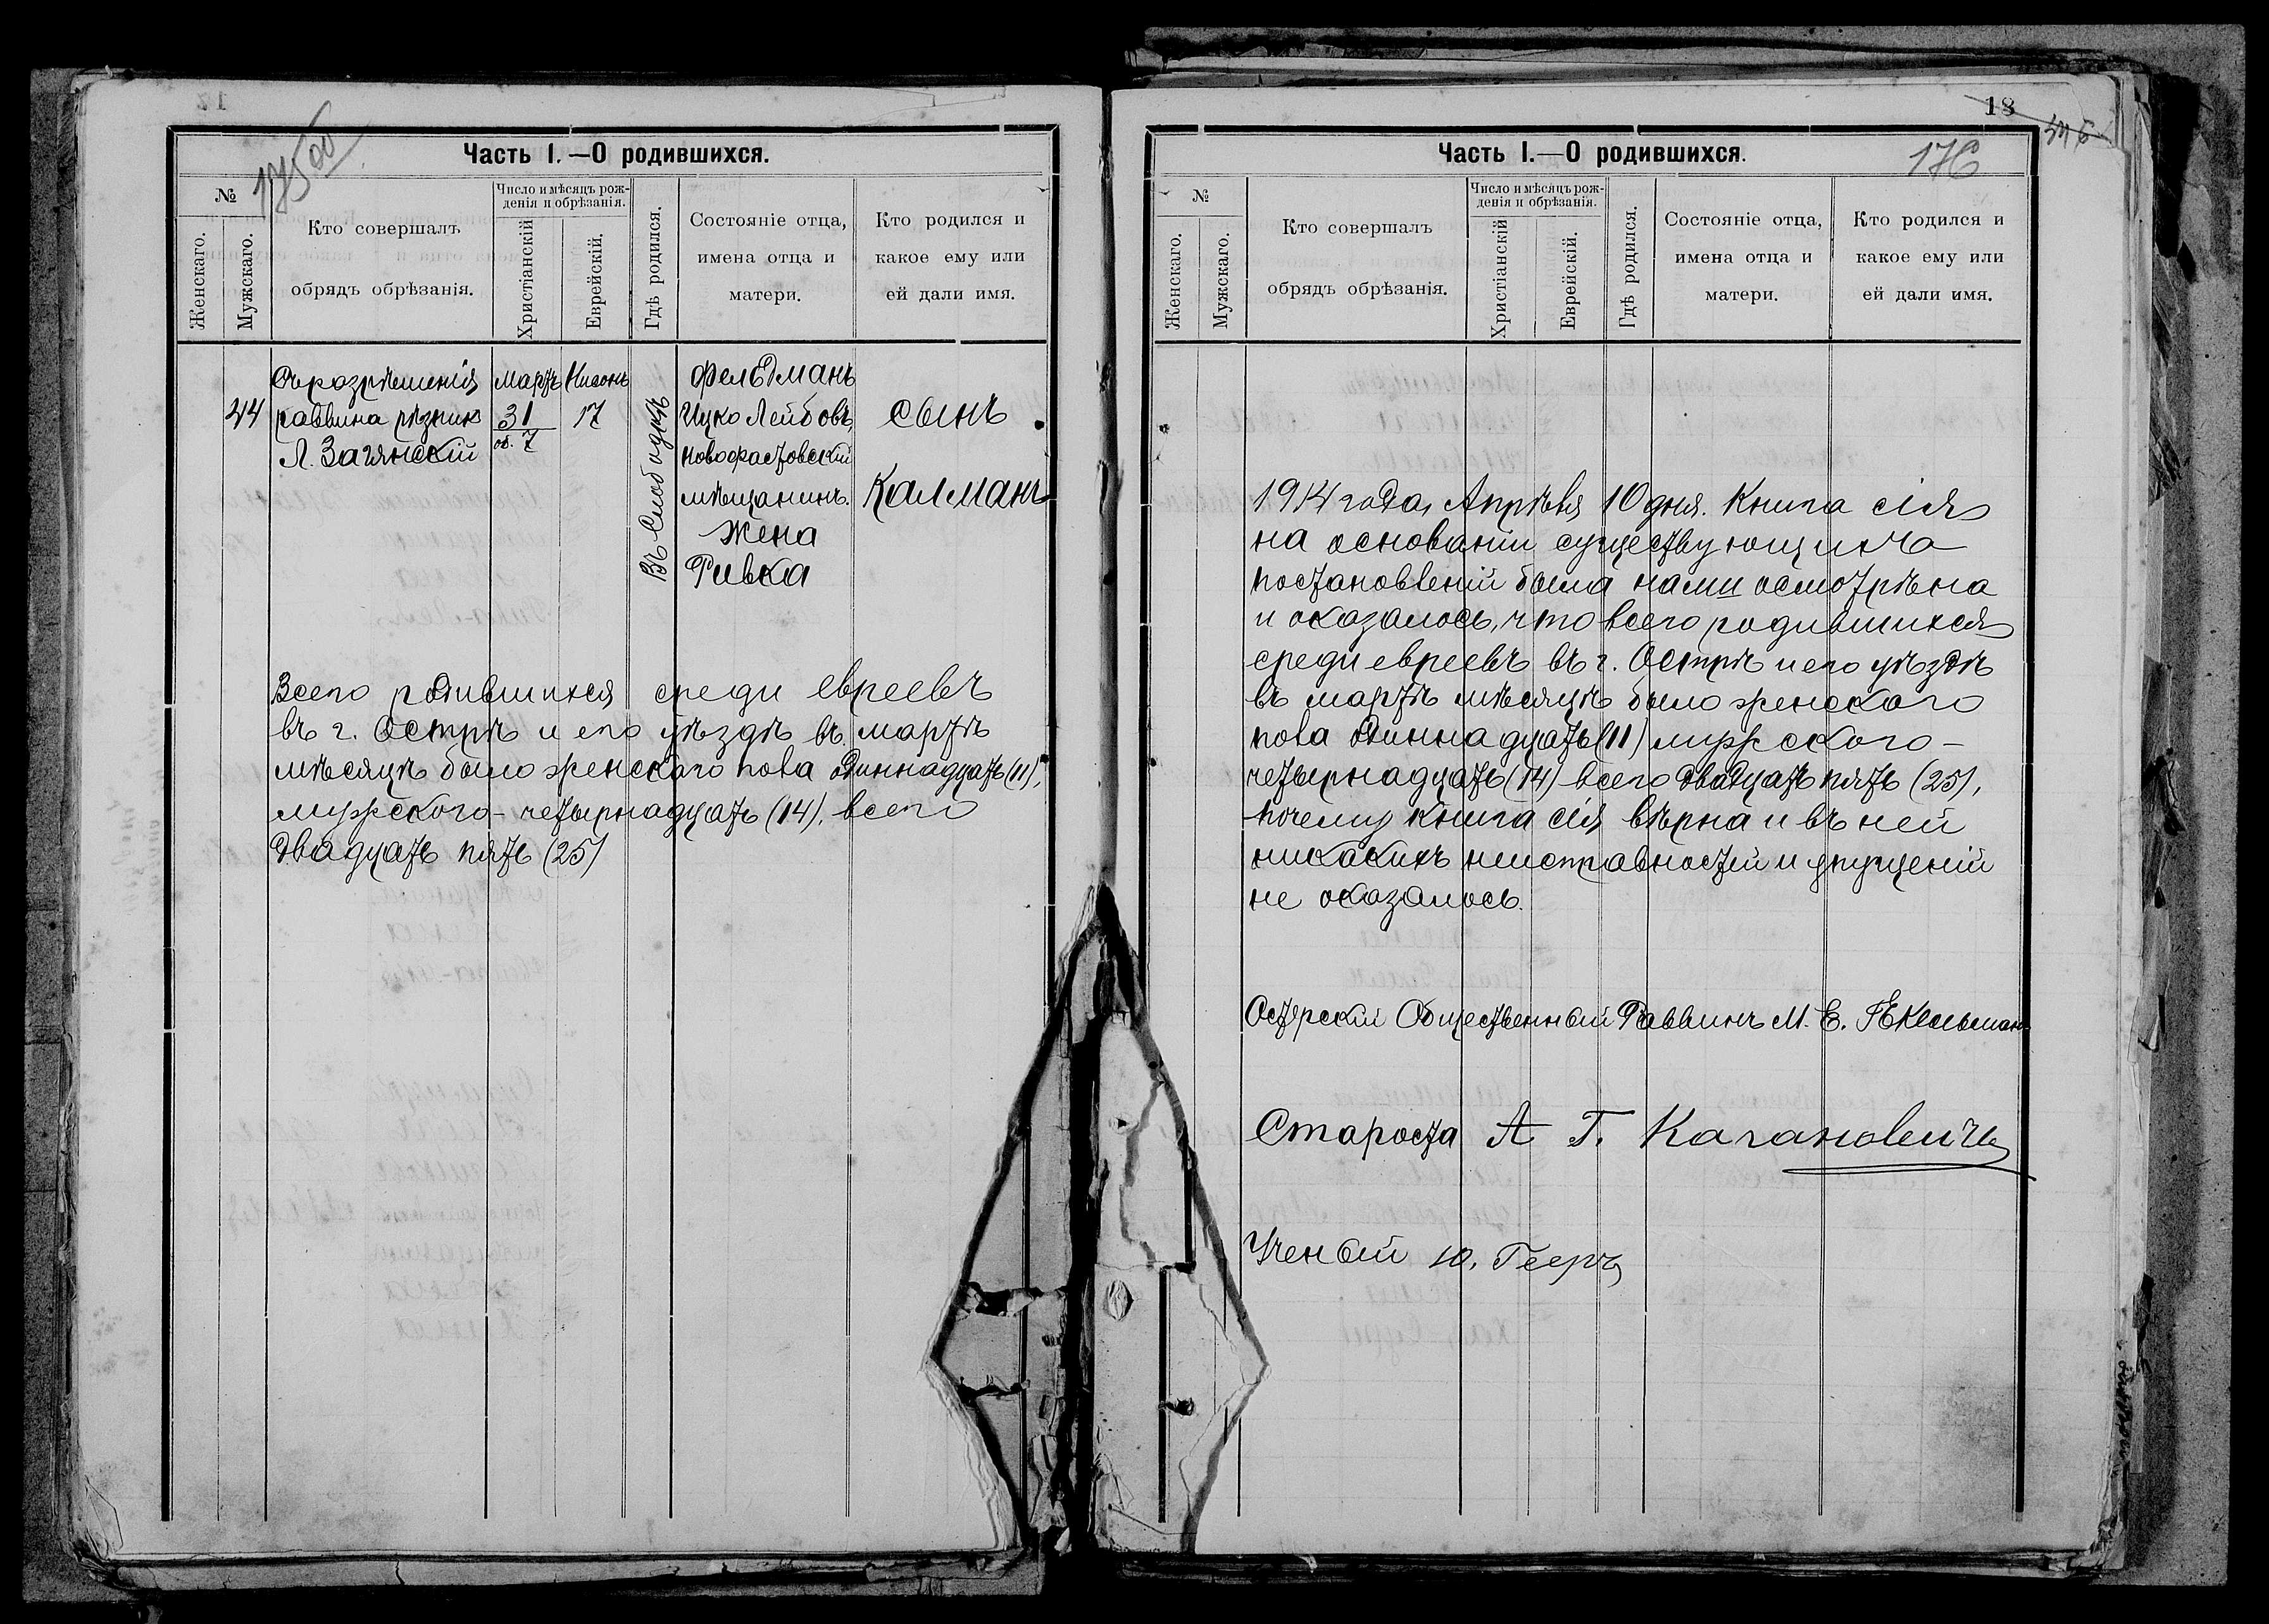 175 об
Часть I.—О родившихся.
№
Женскаго.
Мужскаго.
Кто совершалъ
обрядъ обрѣзанія.
Число и мѣсяцъ рож-
денія и обрѣзанія.
Христіанскій
Еврейскій.
Гдѣ родился.
Состояніе отца,
имена отца и
матери.
Кто родился и
какое ему или
ей дали имя.
44
Съ разрѣшенія
раввина рѣзник
Л. Загянскій
Мартъ
31
об. 7
Нисонъ
17
Въ Слободкѣ
Фельдманъ
Ицко Лейбовъ,
новофастовскій
мѣщанинъ.
Жена
Ривка
сынъ
Калманъ
Всего родившихся среди евреевъ
въ г. Острѣ и его уѣздѣ въ мартѣ
мѣсяцѣ было женскаго пола одиннадцать (11),
мужского - четырнадцать (14), всего
двадцать пять (25)
18
176
Часть I.—О родившихся.
№
Женскаго.
Мужскаго.
Кто совершалъ
обрядъ обрѣзанія.
Число и мѣсяцъ рож-
денія и обрѣзанія.
Христіанскій
Еврейскій.
Гдѣ родился.
Состояніе отца,
имена отца и
матери.
Кто родился и
какое ему или
ей дали имя.
1914 года, Апрѣля 10 дня. Книга сія
на основаніи существующихъ
постановленій была нами осмотрѣна
и оказалось, что всего родившихся
среди евреевъ въ г. Острѣ и его уѣздѣ
въ мартѣ мѣсяцѣ было женского
пола одиннадцать (11) мужского -
четырнадцать (14) всего двадцать пять (25),
почему книга сія вѣрна и въ ней
никакихъ неисправностей и упущеній
не оказалось.
Остерскій Общественный Раввинъ М. Е.
Староста А Г. Кагановичъ
Ученый Ю. Геръ